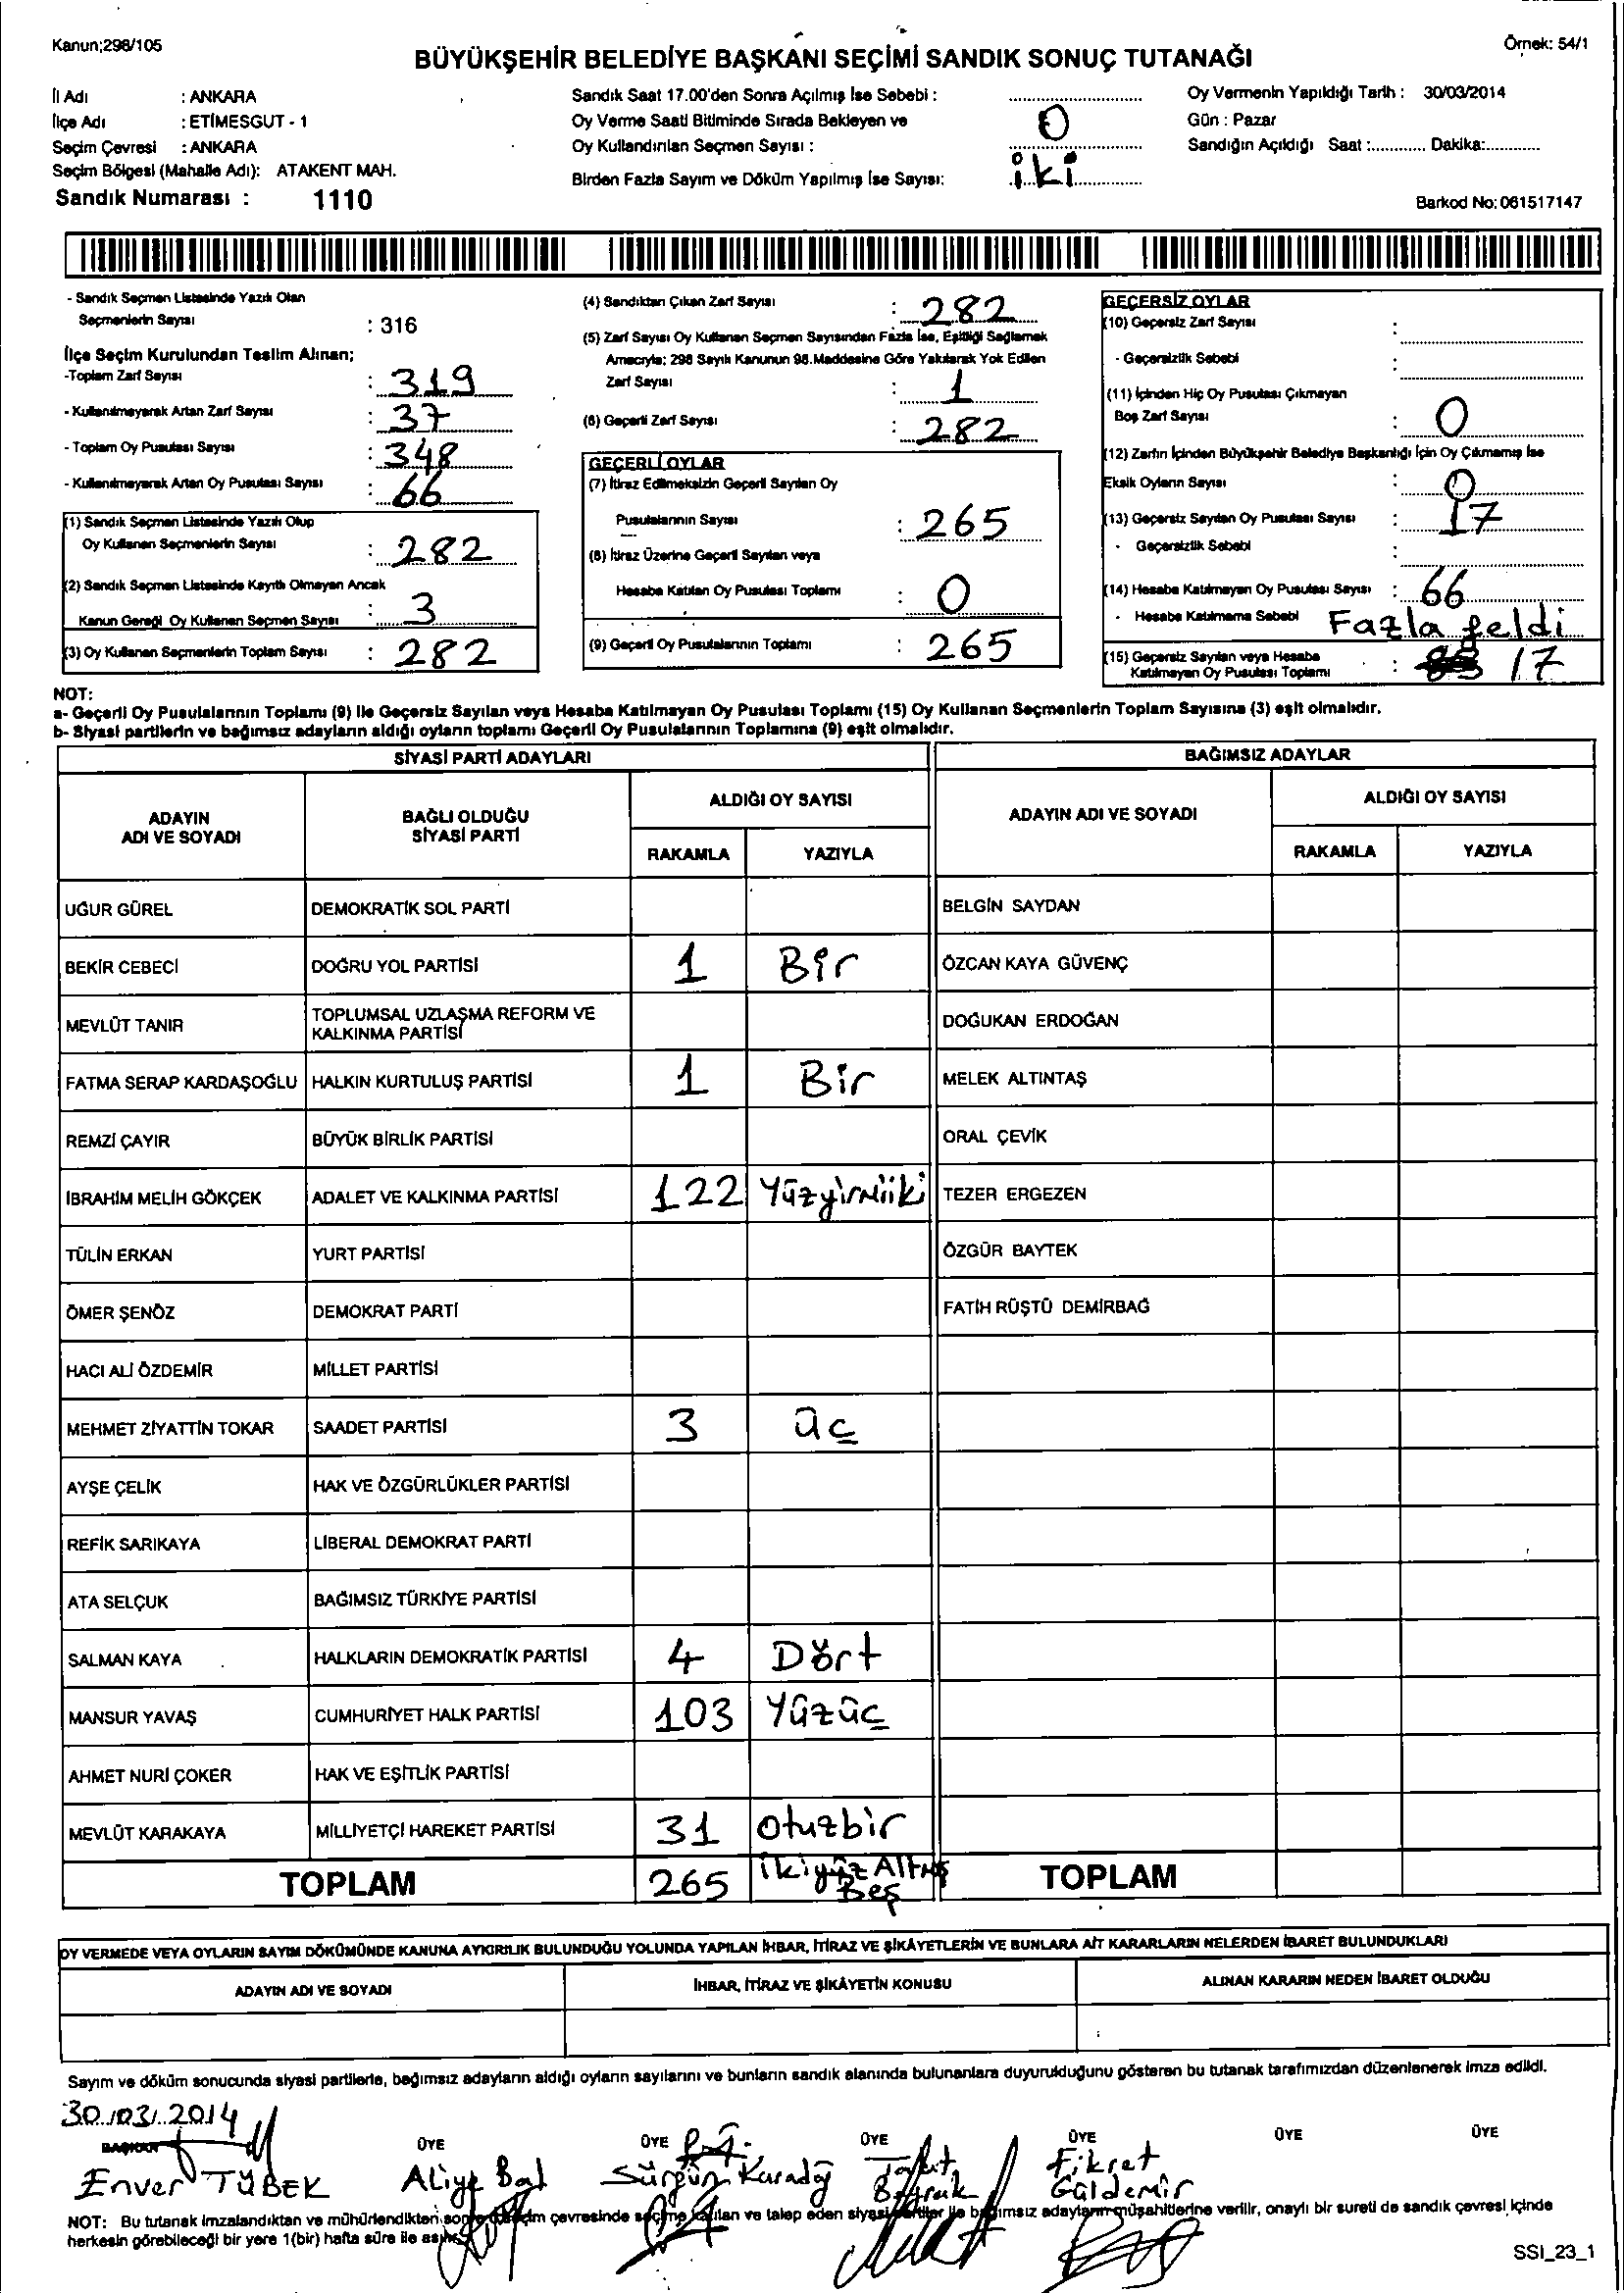 Kanun;298/105
Örnek: 54/1
BÜYÜKŞEHİR BELEDİYE BAŞKANI SEÇİMİ SANDIK SONUÇ TUTANAĞI
İl Adı : ANKARA
İlçe Adı : ETİMESGUT - 1
Seçim Çevresi : ANKARA
Seçim Bölgesi (Mahalle Adı): ATAKENT MAH.
Sandık Numarası : 1110
Sandık Saat 17.00'den Sonra Açılmış İse Sebebi :
Oy Verme Saati Bitiminde Sırada Bekleyen ve
Oy Kullandırılan Seçmen Sayısı : 0
Birden Fazla Sayım ve Döküm Yapılmış İse Sayısı: iki
Oy Vermenin Yapıldığı Tarih : 30/03/2014
Gün : Pazar
Sandığın Açıldığı Saat :............ Dakika:............
Barkod No: 061517147
- Sandık Seçmen Listesinde Yazılı Olan
Seçmenlerin Sayısı : 316
İlçe Seçim Kurulundan Teslim Alınan;
-Toplam Zarf Sayısı : 319
- Kullanılmayarak Artan Zarf Sayısı : 37
- Toplam Oy Pusulası Sayısı : 348
- Kullanılmayarak Artan Oy Pusulası Sayısı : 66
(1) Sandık Seçmen Listesinde Yazılı Olup
Oy Kullanan Seçmenlerin Sayısı : 282
(2) Sandık Seçmen Listesinde Kayıtlı Olmayan Ancak
Kanun Gereği Oy Kullanan Seçmen Sayısı : 3
(3) Oy Kullanan Seçmenlerin Toplam Sayısı : 282
(4) Sandıktan Çıkan Zarf Sayısı : 282
(5) Zarf Sayısı Oy Kullanan Seçmen Sayısından Fazla İse, Eşitliği Sağlamak
Amacıyla; 298 Sayılı Kanunun 98.Maddesine Göre Yakılarak Yok Edilen
Zarf Sayısı : 1
(6) Geçerli Zarf Sayısı : 282
GEÇERLİ OYLAR
(7) İtiraz Edilmeksizin Geçerli Sayılan Oy
Pusulalarının Sayısı : 265
(8) İtiraz Üzerine Geçerli Sayılan veya
Hesaba Katılan Oy Pusulası Toplamı : 0
(9) Geçerli Oy Pusulalarının Toplamı : 265
GEÇERSİZ OYLAR
(10) Geçersiz Zarf Sayısı :
- Geçersizlik Sebebi :
(11) İçinden Hiç Oy Pusulası Çıkmayan
Boş Zarf Sayısı : 0
(12) Zarfın İçinden Büyükşehir Belediye Başkanlığı İçin Oy Çıkmamış İse
Eksik Oyların Sayısı : 0
(13) Geçersiz Sayılan Oy Pusulası Sayısı : 17
- Geçersizlik Sebebi :
(14) Hesaba Katılmayan Oy Pusulası Sayısı : 66
- Hesaba Katılmama Sebebi Fazla geldi
(15) Geçersiz Sayılan veya Hesaba
Katılmayan Oy Pusulası Toplamı : 17
NOT:
a- Geçerli Oy Pusulalarının Toplamı (9) İle Geçersiz Sayılan veya Hesaba Katılmayan Oy Pusulası Toplamı (15) Oy Kullanan Seçmenlerin Toplam Sayısına (3) eşit olmalıdır.
b- Siyasi partilerin ve bağımsız adayların aldığı oyların toplamı Geçerli Oy Pusulalarının Toplamına (9) eşit olmalıdır.
SİYASİ PARTİ ADAYLARI
BAĞIMSIZ ADAYLAR
ADAYIN ADI VE SOYADI
BAĞLI OLDUĞU SİYASİ PARTİ
ALDIĞI OY SAYISI
RAKAMLA YAZIYLA
ADAYIN ADI VE SOYADI
ALDIĞI OY SAYISI
RAKAMLA YAZIYLA
UĞUR GÜREL DEMOKRATİK SOL PARTİ BELGİN SAYDAN
BEKİR CEBECİ DOĞRU YOL PARTİSİ 1 Bir ÖZCAN KAYA GÜVENÇ
MEVLÜT TANIR TOPLUMSAL UZLAŞMA REFORM VE KALKINMA PARTİSİ DOĞUKAN ERDOĞAN
FATMA SERAP KARDAŞOĞLU HALKIN KURTULUŞ PARTİSİ 1 Bir MELEK ALTINTAŞ
REMZİ ÇAYIR BÜYÜK BİRLİK PARTİSİ ORAL ÇEVİK
İBRAHİM MELİH GÖKÇEK ADALET VE KALKINMA PARTİSİ 122 Yüzyirmiiki TEZER ERGEZEN
TÜLİN ERKAN YURT PARTİSİ ÖZGÜR BAYTEK
ÖMER ŞENÖZ DEMOKRAT PARTİ FATİH RÜŞTÜ DEMİRBAĞ
HACI ALİ ÖZDEMİR MİLLET PARTİSİ
MEHMET ZİYATTİN TOKAR SAADET PARTİSİ 3 üç
AYŞE ÇELİK HAK VE ÖZGÜRLÜKLER PARTİSİ
REFİK SARIKAYA LİBERAL DEMOKRAT PARTİ
ATA SELÇUK BAĞIMSIZ TÜRKİYE PARTİSİ
SALMAN KAYA HALKLARIN DEMOKRATİK PARTİSİ 4 Dört
MANSUR YAVAŞ CUMHURİYET HALK PARTİSİ 103 Yüzüç
AHMET NURİ ÇOKER HAK VE EŞİTLİK PARTİSİ
MEVLÜT KARAKAYA MİLLİYETÇİ HAREKET PARTİSİ 31 Otuzbir
TOPLAM 265 ikiyüz Altmış Beş TOPLAM
OY VERMEDE VEYA OYLARIN SAYIM DÖKÜMÜNDE KANUNA AYKIRILIK BULUNDUĞU YOLUNDA YAPILAN İHBAR, İTİRAZ VE ŞİKÂYETLERİN VE BUNLARA AİT KARARLARIN NELERDEN İBARET BULUNDUKLARI
ADAYIN ADI VE SOYADI İHBAR, İTİRAZ VE ŞİKÂYETİN KONUSU ALINAN KARARIN NEDEN İBARET OLDUĞU
Sayım ve döküm sonucunda siyasi partilerle, bağımsız adayların aldığı oyların sayılarını ve bunların sandık alanında bulunanlara duyurulduğunu gösteren bu tutanak tarafımızdan düzenlenerek imza edildi.
30/03/2014
BAŞKAN ÜYE ÜYE ÜYE ÜYE ÜYE ÜYE
Enver TÜBEK Aliye Bal Fikret Güldemir
NOT: Bu tutanak imzalandıktan ve mühürlendikten sonra seçim çevresinde seçime katılan ve talep eden siyasi partiler ile bağımsız adayların müşahitlerine verilir, onaylı bir sureti de sandık çevresi içinde
herkesin görebileceği bir yere 1(bir) hafta süre ile asılır.
SSI_23_1